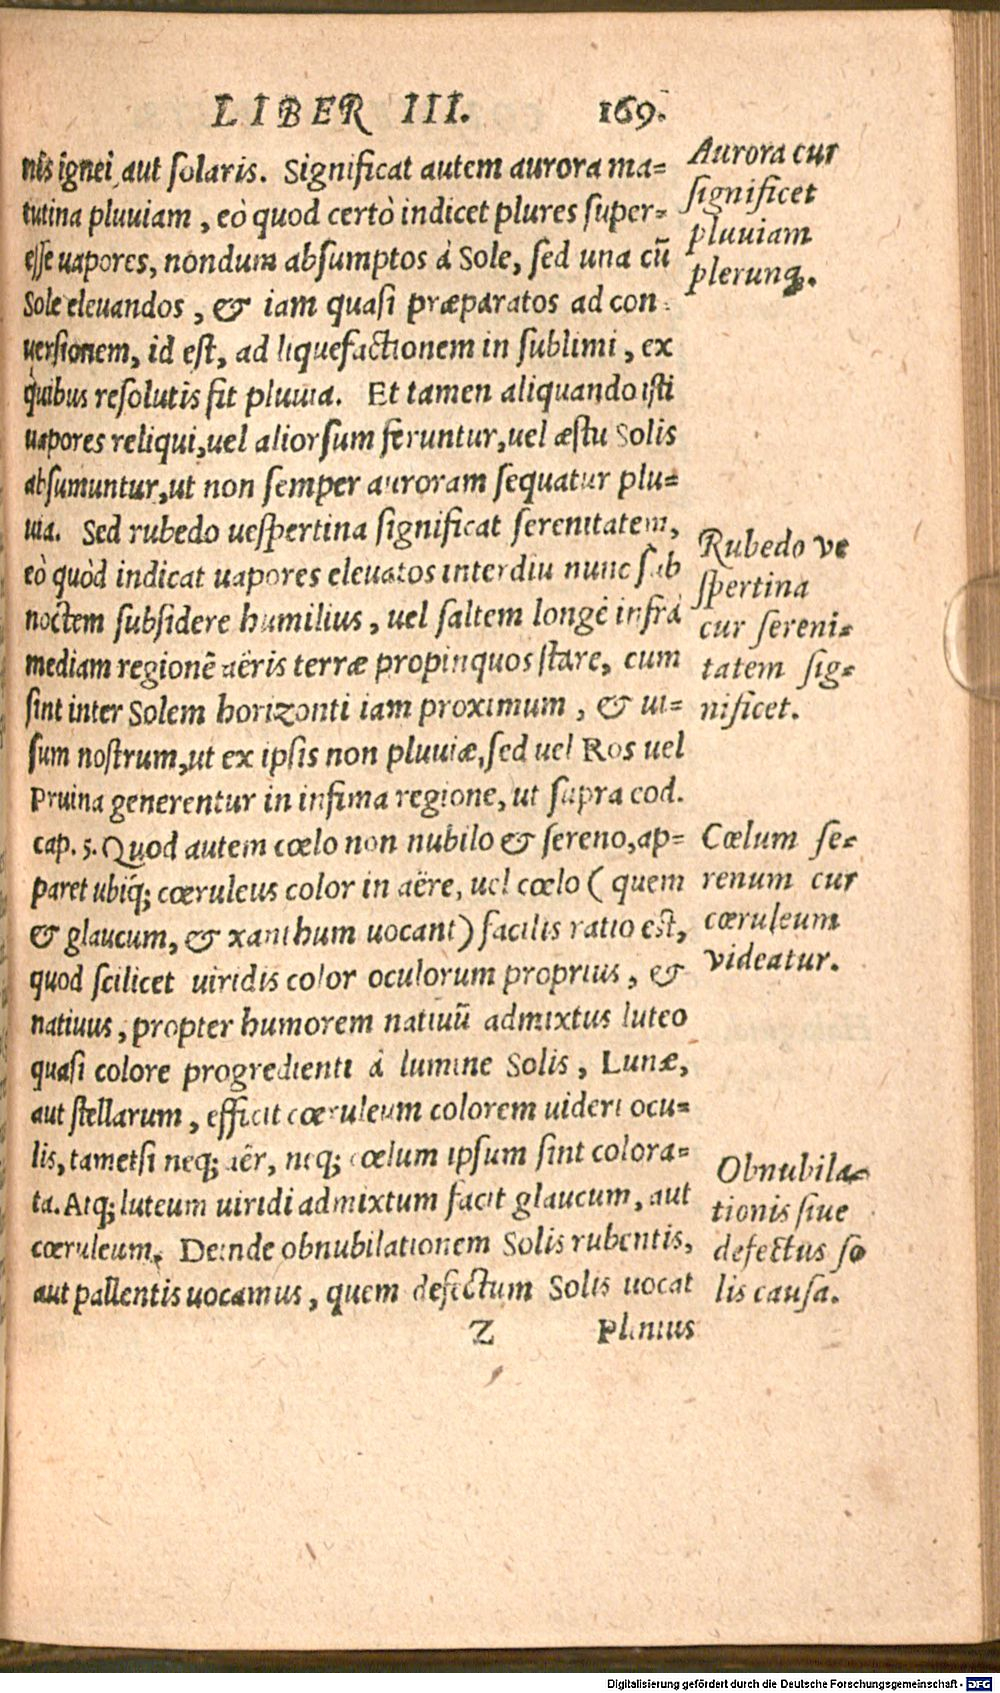 LIBER III. 169.
nis ignei, aut solaris. Significat autem aurora ma=
tutina pluuiam, eò quod certò indicet plures super=
esse uapores, nondum absumptos à Sole, sed una cū
Sole eleuandos, & iam quasi præparatos ad con
uersionem, id est, ad liquefactionem in sublimi, ex
quibus resolutis fit pluuia. Et tamen aliquando isti
uapores reliqui, uel aliorsum feruntur, uel æstu Solis
absumuntur, ut non semper auroram sequatur plu=
uia. Sed rubedo uespertina significat serenitatem,
eò quòd indicat uapores eleuatos interdiu nunc sub
noctem subsidere humilius, uel saltem longè infrà
mediam regionē aëris terræ propinquos stare, cum
sint inter Solem horizonti iam proximum, & ui=
sum nostrum, ut ex ipsis non pluuiæ, sed uel Ros uel
Pruina generentur in infima regione, ut supra eod.
cap. 5. Quod autem cœlo non nubilo & sereno, ap=
paret ubiq; cœruleus color in aëre, uel cœlo (quem
& glaucum, & xanthum uocant) facilis ratio est,
quod scilicet uiridis color oculorum proprius, &
natiuus, propter humorem natiuū admixtus luteo
quasi colore progredienti à lumine Solis, Lunæ,
aut stellarum, efficit cœruleum colorem uideri ocu=
lis, tametsi neq; aër, neq; cœlum ipsum sint colora=
ta. Atq; luteum uiridi admixtum facit glaucum, aut
cœruleum. Deinde obnubilationem Solis rubentis,
aut pallentis uocamus, quem defectum Solis uocat
Z Plinius
Aurora cur
significet
pluuiam
plerunq.
Rubedo ve
spertina
cur sereni=
tatem sig=
nificet.
Cœlum se=
renum cur
cœruleum
videatur.
Obnubila=
tionis siue
defectus so
lis causa.
Digitalisierung gefördert durch die Deutsche Forschungsgemeinschaft - DFG